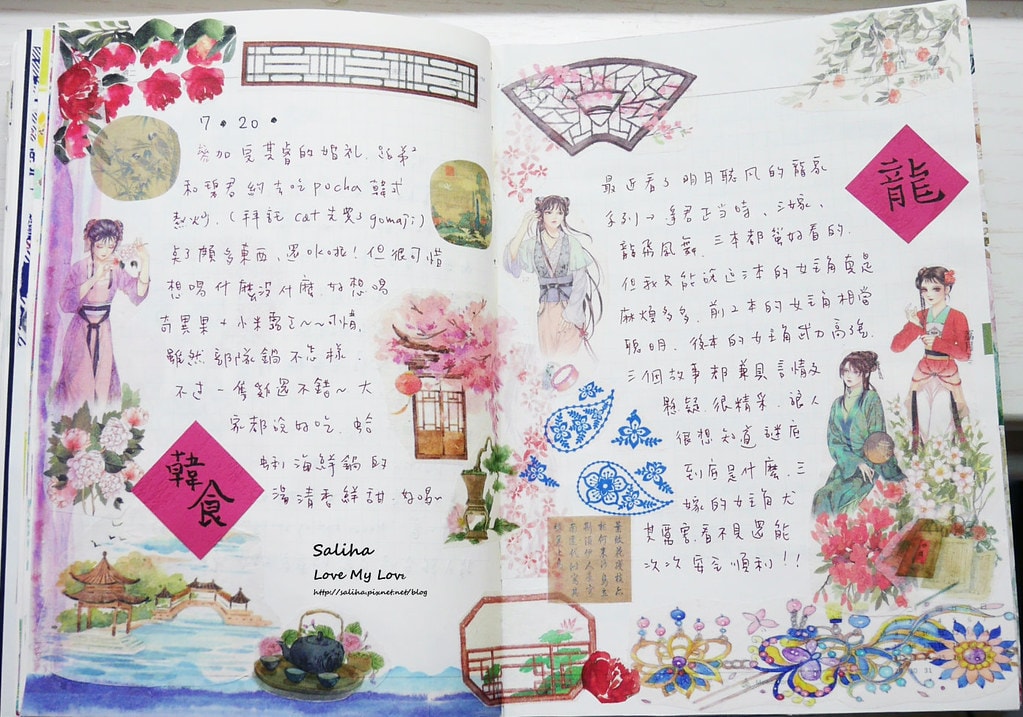 7.20.
參加完其睿的婚禮.
和碧君約去吃pocha韓式
熱炒.(拜託cat先買了gomaji)
點了頗多東西、還ok啦!但很可惜
想喝什麼沒什麼.好想喝
奇異果+小米露ㄛ~~可惜.
雖然部隊鍋不怎樣.
不過一隻雞還不錯~大
家都說好吃.蛤
蜊海鮮鍋的
湯清香鮮甜.好喝~
韓食
Saliha
Love My Lov
http://saliha.pixnet.net/blog
龍
最近看了明月聽風的龍家
系列→逢君正當時、三嫁、
龍飛鳳舞.三本都蠻好看的.
但我只能說這三本的女主角真是
麻煩多多.前2本的女主角相當
聰明.後本的女主角武力高強.
三個故事都兼具言情及
懸疑.很精采.讓人
很想知道謎底
到底是什麼.三
嫁的女主角尤
其厲害.看不見還能
次次安全順利!!